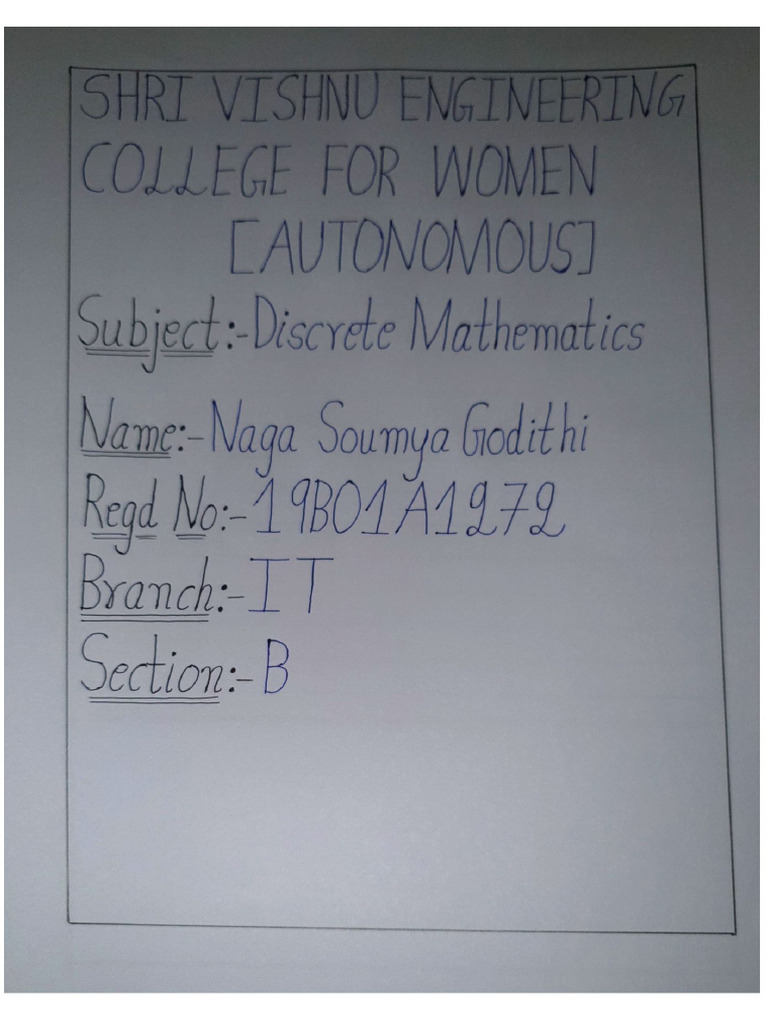 SHRI VISHNU ENGINEERING
COLLEGE FOR WOMEN
[AUTONOMOUS]
Subject:-Discrete Mathematics
Name:-Naga Soumya Godithi
Regd No:-19B01A1272
Branch:-IT
Section:-B